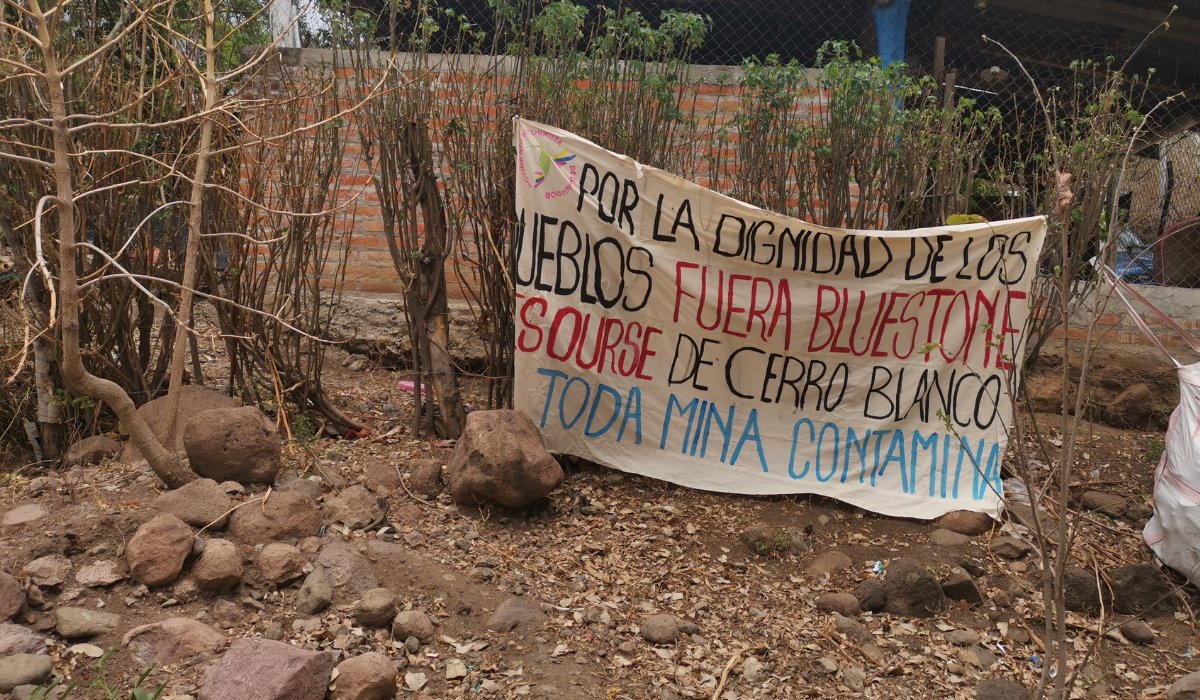 POR LA DIGNIDAD DE LOS
UEBLOS FUERA BLUESTONE
ESOURSE DE CERRO BLANCO
TODA MINA CONTAMINA